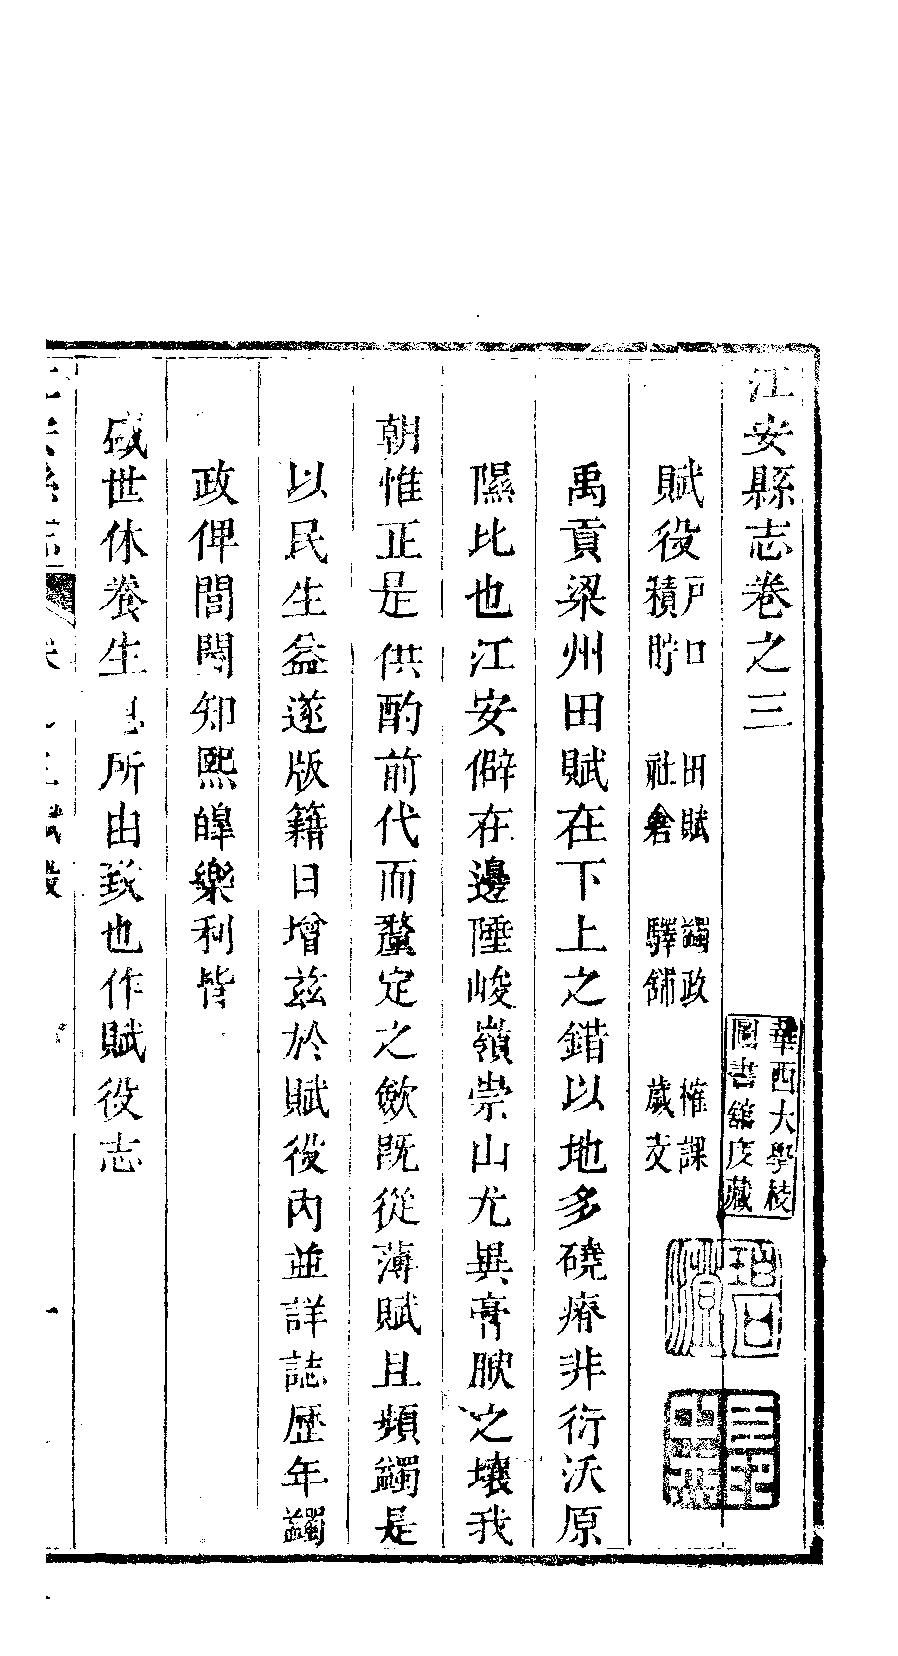 江安縣志卷之三
賦役戶口 田賦 蠲政 榷課
積貯 社倉 驛鋪 歲支
禹貢梁州田賦在下上之錯以地多磽瘠非衍沃原
隰比也江安僻在邊陲峻嶺崇山尤異膏腴之壤我
朝惟正是供酌前代而釐定之斂既從薄賦且頻蠲是
以民生益遂版籍日增茲於賦役內並詳誌歷年蠲
政俾閭閻知熙皞樂利皆
盛世休養生息所由致也作賦役志
華西大學校
圖書館庋藏